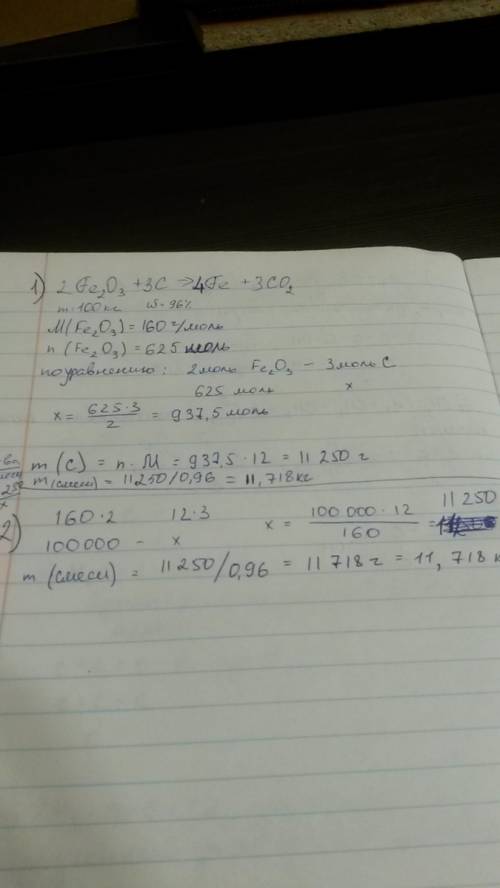 1) 2Fe₂O₃ + 3C → 4Fe + 3CO₂
m=100кг ω=96%
M(Fe₂O₃) = 160 г/моль
n(Fe₂O₃) = 625 моль
по уравнению: 2моль Fe₂O₃ – 3моль C
625 моль x
x = 625·3/2 = 937,5 моль
m(C) = n·M = 937,5·12 = 11 250 г
m(смеси) = 11250/0,96 = 11,718кг
2) 160·2 12·3 x = 100 000·12/160 = 11 250
100000 – x
m(смеси) = 11 250/0,96 = 11 718 г = 11, 718 к